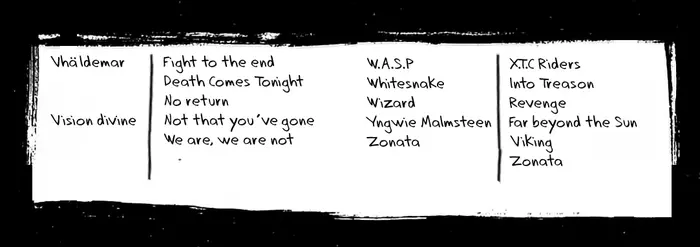 Vhäldemar
Fight to the end
Death Comes Tonight
No return
Vision divine
Not that you've gone
We are, we are not
W.A.S.P
XT.C Riders
Whitesnake
Into Treason
Wizard
Revenge
Yngwie Malmsteen
Far beyond the Sun
Zonata
Viking
Zonata